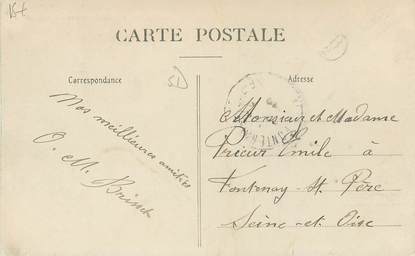 CARTE POSTALE
Correspondance
Nos meilleures amitiés
O. M.
Adresse
Monsieur et Madame
Prieur Emile à
Fontenay-St-Père
Seine-et-Oise